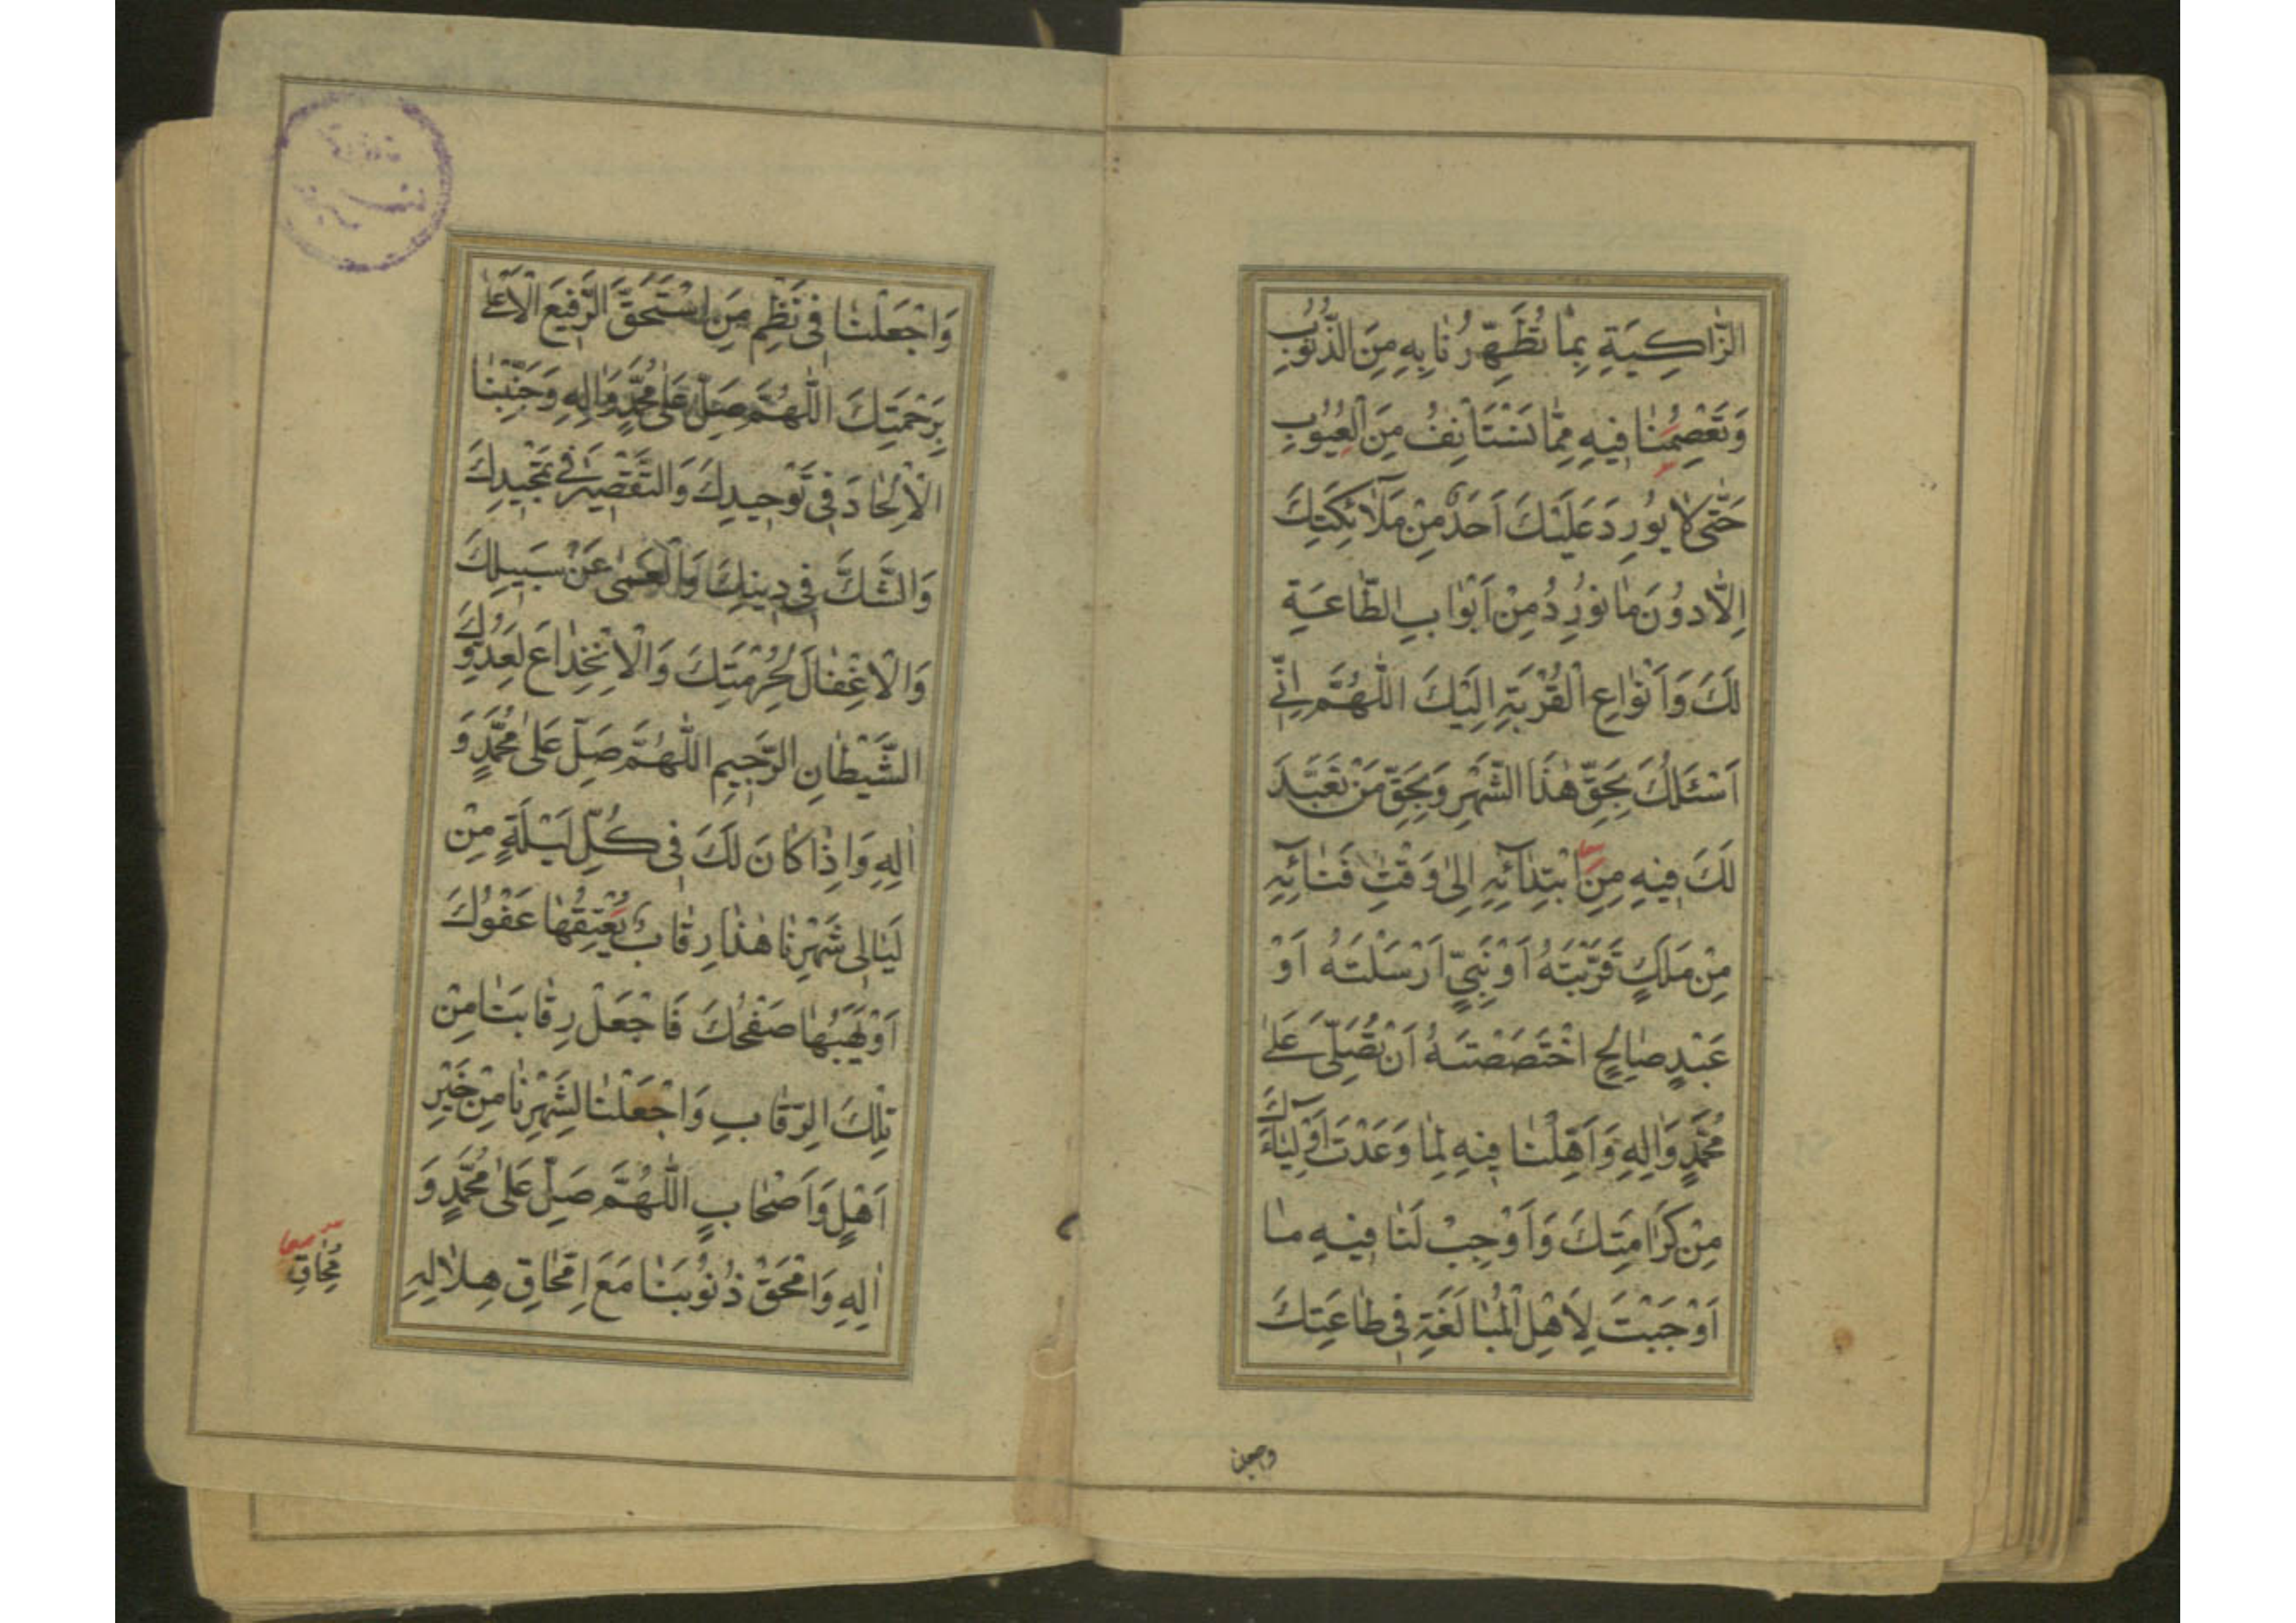 الزَّاكِيَةِ بِمَا تُطَهِّرُنَا بِهِ مِنَ الذُّنُوبِ
وَتَعْصِمُنَا فِيهِ مِمَّا نَسْتَأْنِفُ مِنَ الْعُيُوبِ
حَتَّى لَا يُورِدَ عَلَيْكَ أَحَدٌ مِنْ مَلَآئِكَتِكَ
اِلَّا دُونَ مَا نُورِدُ مِنْ اَبْوَابِ الطَّاعَةِ
لَكَ وَاَنْوَاعِ الْقُرْبَةِ اِلَيْكَ اللّٰهُمَّ اِنِّي
اَسْئَلُكَ بِحَقِّ هٰذَا الشَّهْرِ وَبِحَقِّ مَنْ تَعَبَّدَ
لَكَ فِيهِ مِنَ ابْتِدَآئِهِ اِلىٰ وَقْتِ فَنَائِهِ
مِنْ مَلَكٍ قَرَّبْتَهُ اَوْ نَبِيٍّ اَرْسَلْتَهُ اَوْ
عَبْدٍ صَالِحٍ اخْتَصَصْتَهُ اَنْ تُصَلِّيَ عَلىٰ
مُحَمَّدٍ وَاٰلِهِ وَاَهِّلْنَا فِيهِ لِمَا وَعَدْتَ اَوْلِيَآءَكَ
مِنْ كَرَامَتِكَ وَاَوْجِبْ لَنَا فِيهِ مَا
اَوْجَبْتَ لِاَهْلِ الْمُبَالَغَةِ فِي طَاعَتِكَ
وَاجْعَلْنَا فِي نَظْمِ مَنِ اسْتَحَقَّ الرَّفِيعَ الْاَعْلىٰ
بِرَحْمَتِكَ اللّٰهُمَّ صَلِّ عَلىٰ مُحَمَّدٍ وَاٰلِهِ وَجَنِّبْنَا
الْاِلْحَادَ فِي تَوْحِيدِكَ وَالتَّقْصِيرَ فِي تَمْجِيدِكَ
وَالشَّكَّ فِي دِينِكَ وَالْعَمىٰ عَنْ سَبِيلِكَ
وَالْاِغْفَالَ لِحُرْمَتِكَ وَالْاِنْخِدَاعَ لِعَدُوِّكَ
الشَّيْطَانِ الرَّجِيمِ اللّٰهُمَّ صَلِّ عَلىٰ مُحَمَّدٍ وَ
اٰلِهِ وَاِذَا كَانَ لَكَ فِي كُلِّ لَيْلَةٍ مِنْ
لَيَالِي شَهْرِنَا هٰذَا رِقَابٌ يُعْتِقُهَا عَفْوُكَ
اَوْ يَهَبُهَا صَفْحُكَ فَاجْعَلْ رِقَابَنَا مِنْ
تِلْكَ الرِّقَابِ وَاجْعَلْنَا لِشَهْرِنَا مِنْ خَيْرِ
اَهْلٍ وَاَصْحَابٍ اللّٰهُمَّ صَلِّ عَلىٰ مُحَمَّدٍ وَ
اٰلِهِ وَامْحَقْ ذُنُوبَنَا مَعَ امِّحَاقِ هِلَالِهِ
معا
مُحَاقِ